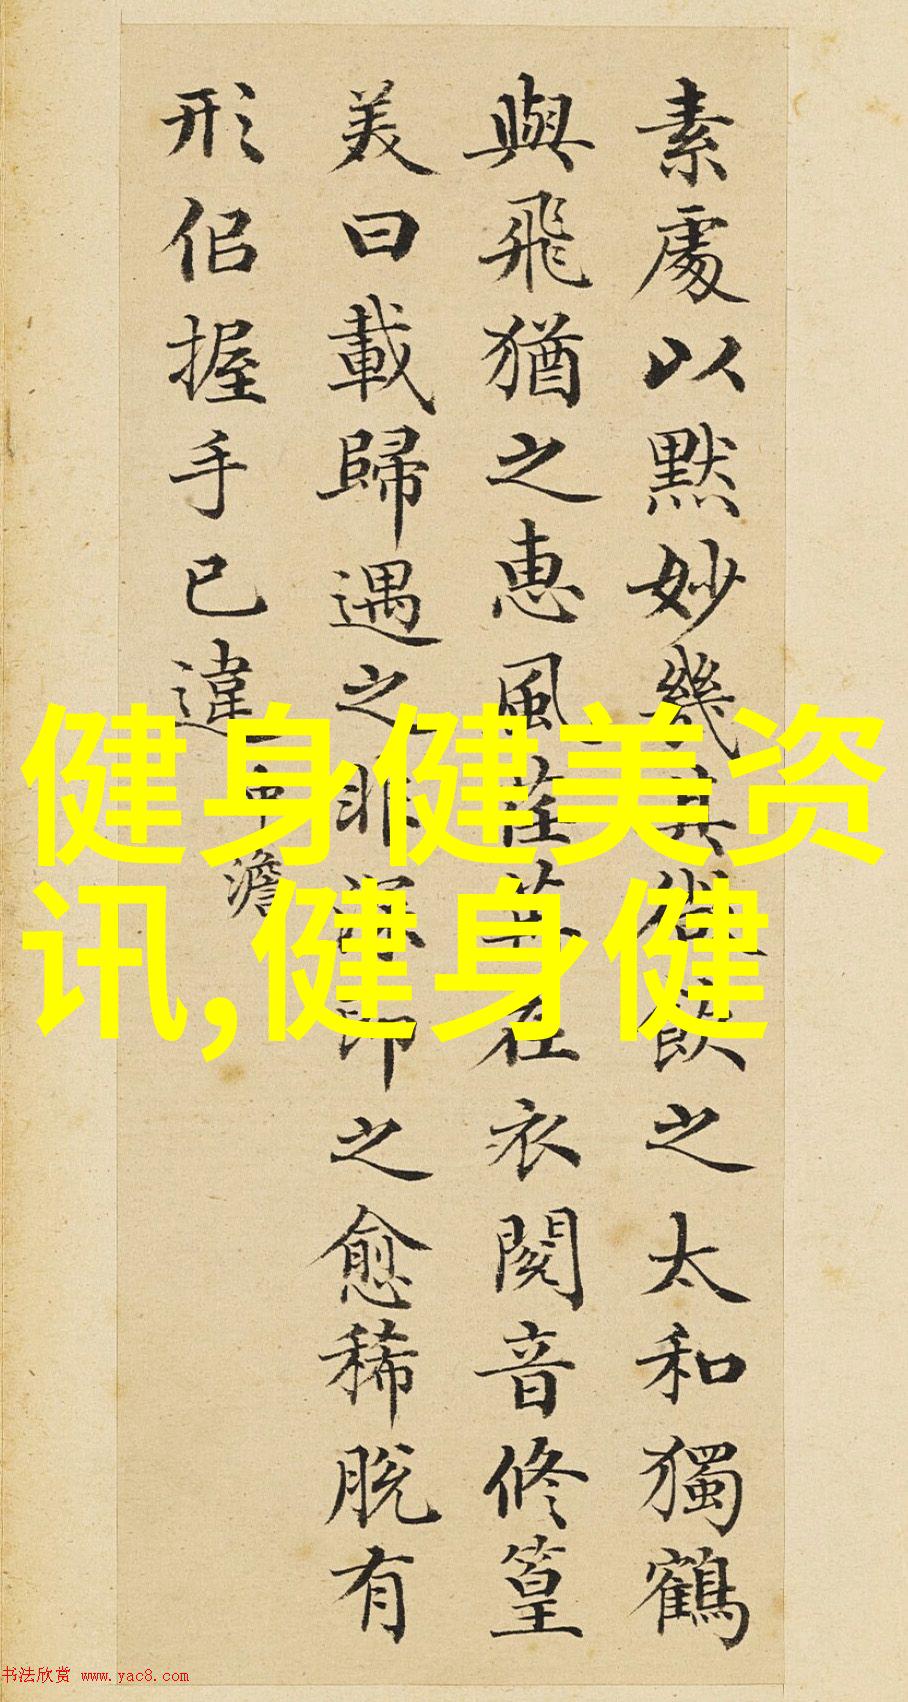 素處以默妙幾其微飲之太和獨鶴
與飛猶之惠風荏苒在衣閱音修篁
美曰載歸遇之非深即之愈稀脫有
形佀握手已違
沖澹
健身健美资
讯,健身健
书法欣赏 www.yac8.com